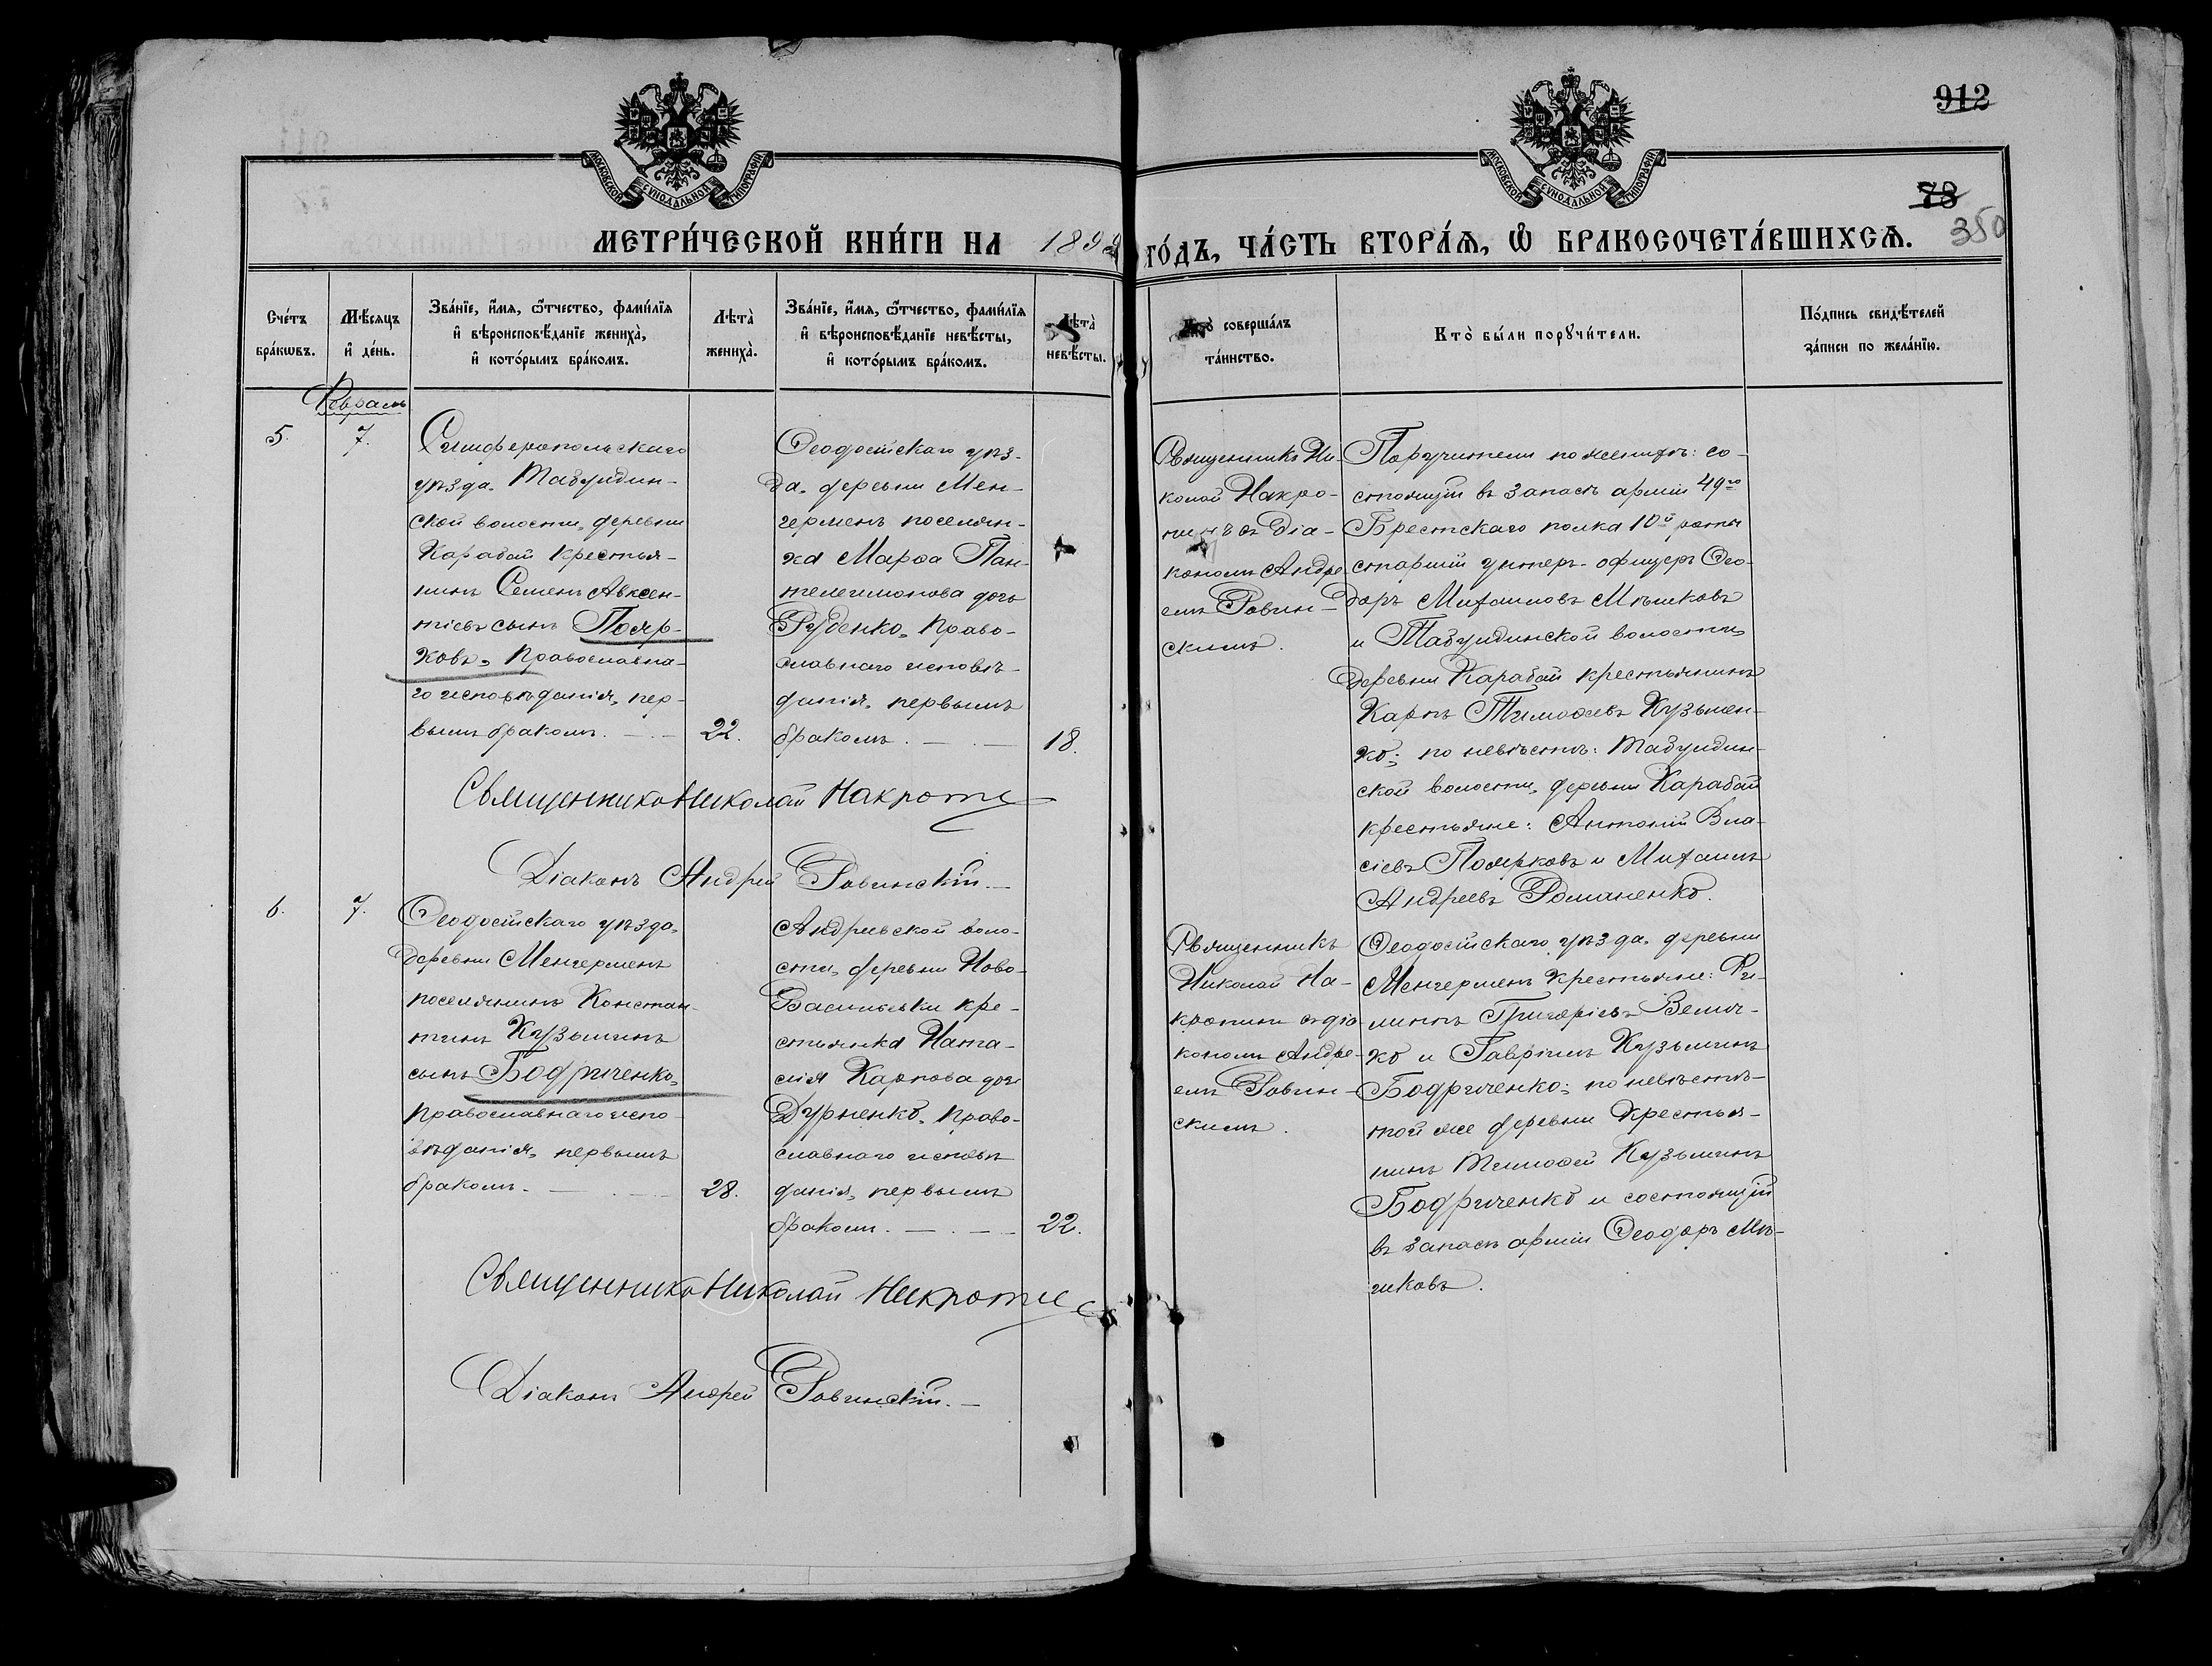 912
МОСКОВСКОЙ СѴНОДАЛЬНОЙ ТИПОГРАФІИ
МОСКОВСКОЙ СѴНОДАЛЬНОЙ ТИПОГРАФІИ
78
350
МЕТРИ́ЧЕСКОЙ КНИ́ГИ НА 189
ГО́ДЪ, ЧА́СТЬ ВТОРА́Ѧ, Ѡ҆ БРАКОСОЧЕТА́ВШИХСѦ.
Сче́тъ
бра́кѡвъ.
Мѣ́сяцъ
и҆ де́нь.
Зва́нїе, и҆́мя, ѻ҆́тчество, фами́лїя
и҆ вѣроисповѣ́данїе жениха̀,
и҆ кото́рымъ бра́комъ.
Лѣта̀
жениха̀.
Зва́нїе, и҆́мя, ѻ҆́тчество, фами́лїя
и҆ вѣроисповѣ́данїе невѣ́сты,
и҆ кото́рымъ бра́комъ.
Лѣта̀
невѣ́сты.
Кто̀ соверша́лъ
та́инство.
Кто̀ бы́ли порꙋчи́тели.
По́дпись свидѣ́телей
за́писи по жела́нїю.
Февраль
5.
7.
Симферопольскаго
уѣзда, Табулдин-
ской волости, деревни
Карабай крестья-
нинъ Семенъ Авксен-
тіевъ сынъ Пояр-
ковъ, православна-
го исповѣданія, пер-
вымъ бракомъ.
22.
Ѳеодосійскаго уѣз-
да, деревни Мен-
герменъ поселян-
ка Марѳа Пан-
телеимонова дочь
Руденко, право-
славнаго исповѣ-
данія, первымъ
бракомъ.
18.
Священникъ Ни-
колай Накро-
пинъ съ діа-
кономъ Андре-
емъ Ровин-
скимъ.
Поручители по женихѣ: со-
стоящій въ запасѣ арміи 49го
Брестскаго полка 10й роты
старшій унтеръ-офицеръ Ѳео-
доръ Михаиловъ Мѣшковъ
и Табулдинской волости,
деревни Карабай крестьянинъ
Карпъ Тимоѳеевъ Кузьмен-
ко; по невѣстѣ: Табулдин-
ской волости, деревни Карабай
крестьяне: Антоній Вла-
сіевъ Поярковъ и Михаилъ
Андреевъ Романенко.
Священникъ Николай
Діаконъ Андрей Ровинскій.
6.
7.
Ѳеодосійскаго уѣзда,
деревни Менгерменъ
поселянинъ Констан-
тинъ Кузьминъ
сынъ Бодриченко,
православнаго испо-
вѣданія, первымъ
бракомъ.
28.
Андреевской воло-
сти, деревни Ново-
Васильевки кре-
стьянка Ната-
лія Карпова дочь
Дурненко, право-
славнаго исповѣ-
данія, первымъ
бракомъ.
22.
Священникъ
Николай На-
кропинъ съ діа-
кономъ Андре-
емъ Ровин-
скимъ.
Ѳеодосійскаго уѣзда, деревни
Менгерменъ крестьяне: Фи-
липпъ Григорьевъ Велич-
ко и Гавріилъ Кузьминъ
Бодриченко; по невѣстѣ-
той же деревни крестья-
нинъ Тимоѳей Кузьминъ
Бодриченко и состоящій
въ запасѣ арміи Ѳеодоръ Мѣ-
шковъ.
Священникъ Николай
Діаконъ Андрей Ровинскій.